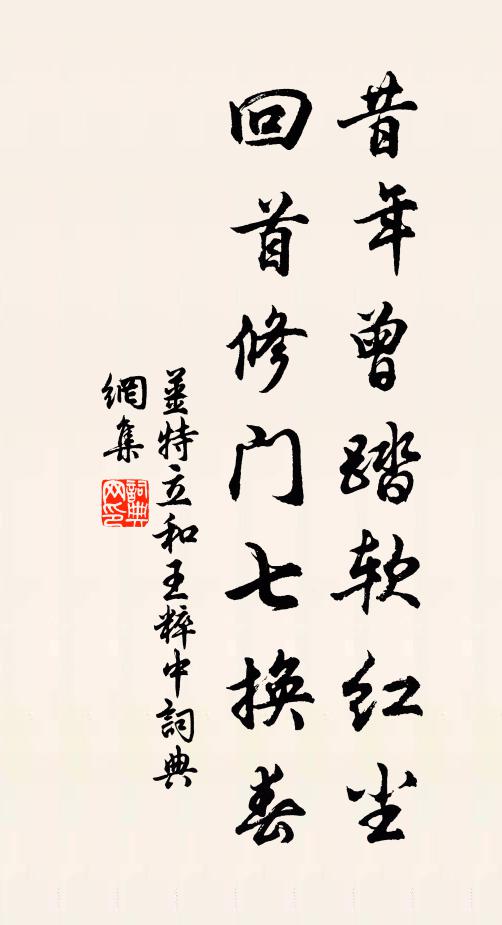 昔年曾踏软红尘
回首修门七换春
姜特立和王粹中詞典
網集
詞典
网印